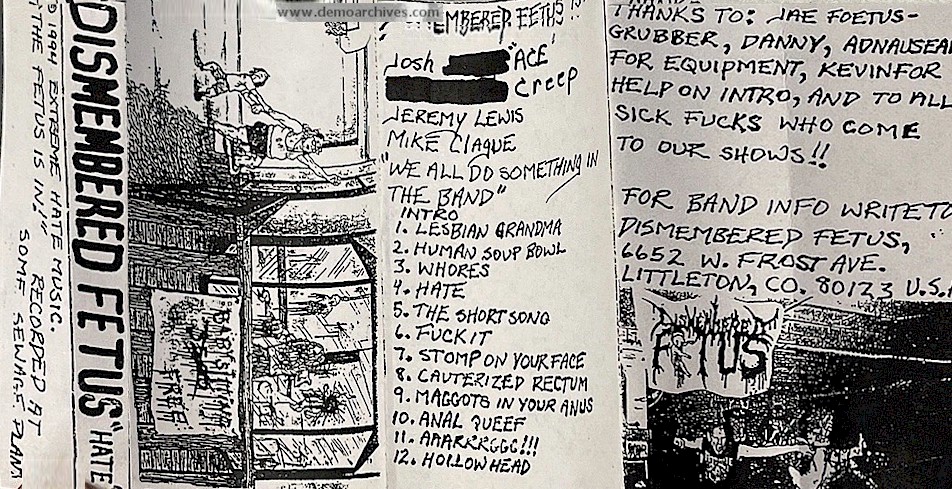 www.demoarchives.com
1994 EXTREME HATE MUSIC.
"THE FETUS IS IN!!"
RECORDED AT
SOME SEWAGE PLANT
DISMEMBERED FETUS "HATE"
FREE
Josh "ACE"
Creep
JEREMY LEWIS
MIKE Clague
"WE ALL DO SOMETHING IN
THE BAND"
INTRO
1. LESBIAN GRANDMA
2. HUMAN SOUP BOWL
3. WHORES
4. HATE
5. THE SHORT SONG
6. FUCK IT
7. STOMP ON YOUR FACE
8. CAUTERIZED RECTUM
9. MAGGOTS IN YOUR ANUS
10. ANAL QUEEF
11. AAARRRGGG!!!
12. HOLLOW HEAD
THANKS TO: JAE FOETUS-
GRUBBER, DANNY, ADNAUSEA
FOR EQUIPMENT, KEVIN FOR
HELP ON INTRO, AND TO ALL
SICK FUCKS WHO COME
TO OUR SHOWS!!
FOR BAND INFO WRITE TO
DISMEMBERED FETUS,
6652 W. FROST AVE.
LITTLETON, CO. 80123 U.S.
DISMEMBERED
FETUS